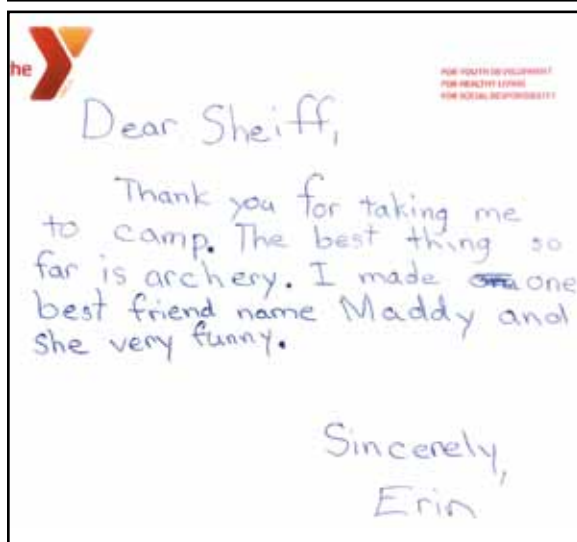 he
FOR YOUTH DEVELOPMENT
FOR HEALTHY LIVING
FOR SOCIAL RESPONSIBILITY
Dear Sheiff,
Thank you for taking me
to camp. The best thing so
far is archery. I made one
best friend name Maddy and
she very funny.
Sincerely,
Erin